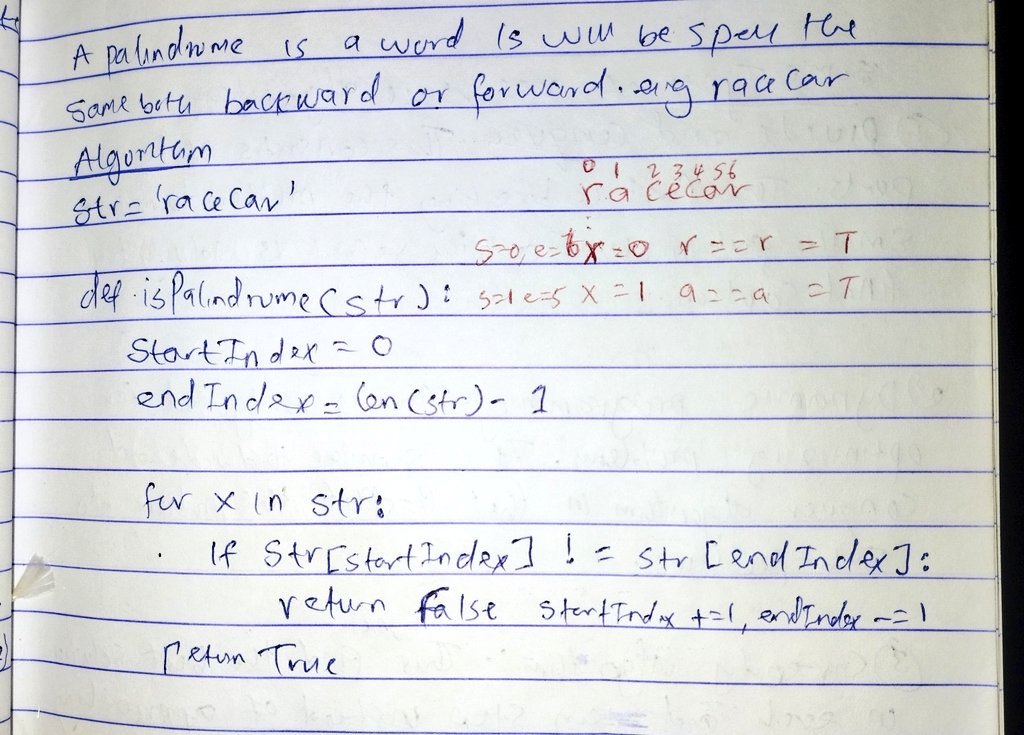 A palindrome is a word is will be spell the
same both backward or forward. eg racecar
Algorithm
0 1 2 3 4 5 6
str = 'racecar' racecar
s=0, e=6 x=0 r==r = T
def isPalindrome(str): s=1 e=5 x=1 a==a = T
StartIndex = 0
endIndex = len(str) - 1
for x in str:
If Str[startIndex] != str[endIndex]:
return False startIndex +=1, endIndex -=1
return True